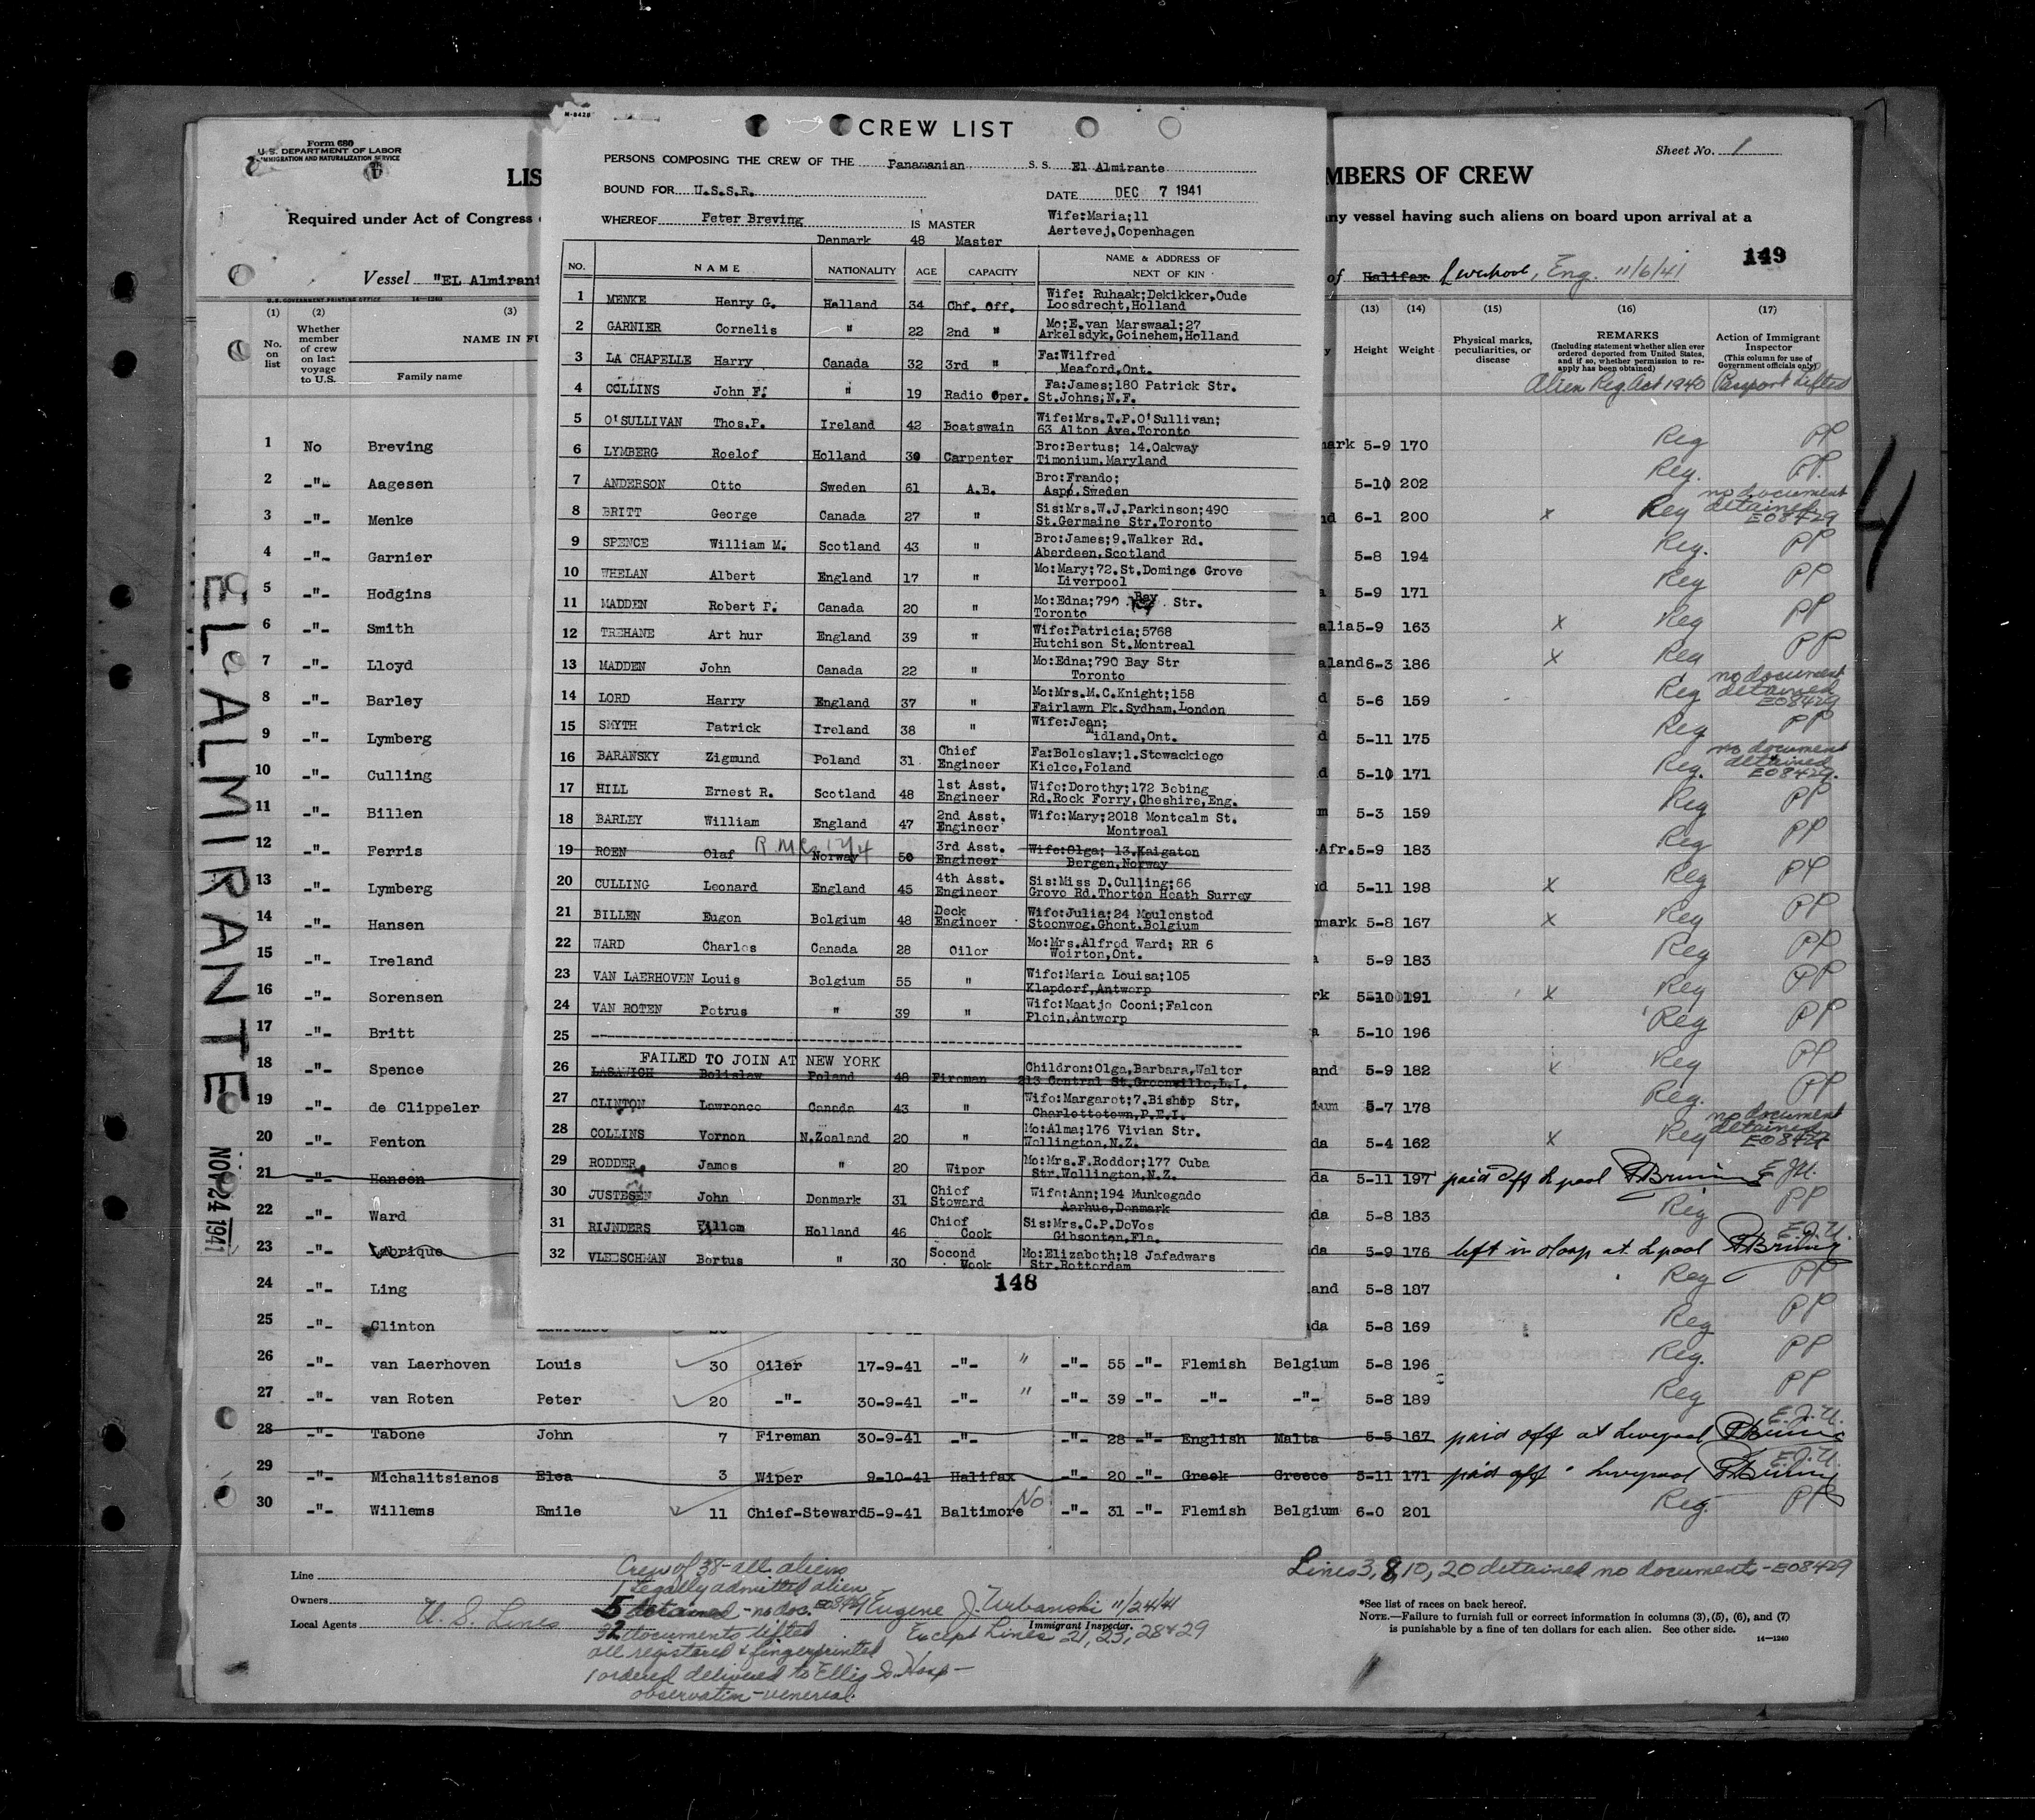 Form 680
U.S. DEPARTMENT OF LABOR
IMMIGRATION AND NATURALIZATION SERVICE
LIS
Required under Act of Congress
Vessel "EL Almirant
U.S. GOVERNMENT PRINTING OFFICE 14-1240
(1) (2) (3)
No. on list
Whether member of crew on last voyage to U.S.
NAME IN FU
Family name
1 No Breving
2 -"- Aagesen
3 -"- Menke
4 -"- Garnier
5 -"- Hodgins
6 -"- Smith
7 -"- Lloyd
8 -"- Barley
9 -"- Lymberg
10 -"- Culling
11 -"- Billen
12 -"- Ferris
13 -"- Lymberg
14 -"- Hansen
15 -"- Ireland
16 -"- Sorensen
17 -"- Britt
18 -"- Spence
19 -"- de Clippeler
20 -"- Fenton
21 -"- Hansen
22 -"- Ward
23 -"- Labrique
24 -"- Ling
25 -"- Clinton
EL ALMIRANTE
NOV 24 1941
M-8428
CREW LIST
PERSONS COMPOSING THE CREW OF THE Panamanian S.S. El Almirante
BOUND FOR U.S.S.R. DATE DEC 7 1941
WHEREOF Peter Breving IS MASTER Wife:Maria;11
Aertevej,Copenhagen
Denmark 48 Master
NO. NAME NATIONALITY AGE CAPACITY NAME & ADDRESS OF NEXT OF KIN
1 MENKE Henry G. Holland 34 Chf. Off. Wife: Ruhaak;Dekikker,Oude
Loosdrecht,Holland
2 GARNIER Cornelis " 22 2nd " Mo:E.van Marswaal;27
Arkelsdyk,Goinehem,Holland
3 LA CHAPELLE Harry Canada 32 3rd " Fa:Wilfred
Meaford,Ont.
4 COLLINS John F. " 19 Radio Oper. Fa:James;180 Patrick Str.
St.Johns;N.F.
5 O'SULLIVAN Thos.P. Ireland 42 Boatswain Wife:Mrs.T.P.O'Sullivan;
63 Alton Ave.Toronto
6 LYMBERG Roelof Holland 30 Carpenter Bro:Bertus; 14.Oakway
Timonium.Maryland
7 ANDERSON Otto Sweden 61 A.B. Bro:Frando;
Aspö,Sweden
8 BRITT George Canada 27 " Sis:Mrs.W.J.Parkinson;490
St.Germaine Str.Toronto
9 SPENCE William M. Scotland 43 " Bro:James;9.Walker Rd.
Aberdeen,Scotland
10 WHELAN Albert England 17 " Mo:Mary;72.St.Domingo Grove
Liverpool
11 MADDEN Robert P. Canada 20 " Mo:Edna;790 Bay Str.
Toronto
12 TREHANE Art hur England 39 " Wife:Patricia;5768
Hutchison St.Montreal
13 MADDEN John Canada 22 " Mo:Edna;790 Bay Str
Toronto
14 LORD Harry England 37 " Mo:Mrs.M.C.Knight;158
Fairlawn Pk.Sydham.London
15 SMYTH Patrick Ireland 38 " Wife:Jean;
Midland,Ont.
16 BARANSKY Zigmund Poland 31 Chief Engineer Fa:Boleslav;1.Stowackiego
Kielce,Poland
17 HILL Ernest R. Scotland 48 1st Asst. Engineer Wife:Dorothy;172 Bebing
Rd.Rock Ferry,Cheshire,Eng.
18 BARLEY William England 47 2nd Asst. Engineer Wife:Mary;2018 Montcalm St.
Montreal
19 ROEN Olaf Norway 50 3rd Asst. Engineer Wife:Olga; 13.Kaigaton
Bergen,Norway
20 CULLING Leonard England 45 4th Asst. Engineer Sis:Miss D.Culling;66
Grovo Rd.Thorton Heath Surrey
21 BILLEN Eugen Belgium 48 Deck Engineer Wife:Julia;24 Meulonstod
Steenwog.Ghent.Belgium
22 WARD Charles Canada 28 Oiler Mo:Mrs.Alfred Ward; RR 6
Woirton,Ont.
23 VAN LAERHOVEN Louis Belgium 55 " Wife:Maria Louisa;105
Klapdorf,Antwerp
24 VAN ROTEN Petrus " 39 " Wife:Maatje Cooni;Falcon
Plein,Antwerp
25
FAILED TO JOIN AT NEW YORK
26 LASAWICH Bolislaw Poland 48 Fireman Children:Olga,Barbara,Walter
213 Central St.Greenville,L.I.
27 CLINTON Lawrence Canada 43 " Wife:Margaret;7.Bishop Str.
Charlottetown,P.E.I.
28 COLLINS Vernon N.Zealand 20 " Mo:Alma;176 Vivian Str.
Wellington,N.Z.
29 RODDER James " 20 Wiper Mo:Mrs.F.Roddor;177 Cuba
Str.Wellington,N.Z.
30 JUSTESEN John Denmark 31 Chief Steward Wife:Ann;194 Munkegade
Aarhus,Denmark
31 RIJNDERS Willem Holland 46 Chief Cook Sis:Mrs.C.P.DeVos
Gibsonton,Fla.
32 VLEESCHMAN Bertus " 30 Second Cook Mo:Elizabeth;18 Jafadwars
Str.Rotterdam
148
Sheet No. 1
MBERS OF CREW
any vessel having such aliens on board upon arrival at a
149
of Halifax Liverpool, Eng. 11/6/41
(13) (14) (15) (16) (17)
Height Weight
Physical marks, peculiarities, or disease
REMARKS
(Including statement whether alien ever ordered deported from United States, and if so, whether permission to reapply has been obtained)
Action of Immigrant Inspector
(This column for use of Government officials only)
Alien Reg. Act 1940 Passport Lifted
mark 5-9 170 Reg PP
5-10 202 Reg. PP.
nd 6-1 200 x Reg no document detained E08429
5-8 194 Reg. PP
a 5-9 171 Reg PP
alia 5-9 163 x Reg PP
aland 6-3 186 x Reg PP
d 5-6 159 Reg no document detained E08429
d 5-11 175 Reg PP
d 5-10 171 Reg. no document detained E08429.
m 5-3 159 Reg PP
.Afr. 5-9 183 Reg PP
nd 5-11 198 x Reg PP
nmark 5-8 167 x Reg PP
a 5-9 183 Reg PP
rk 5-10 191 x Reg PP
a 5-10 196 Reg PP
and 5-9 182 x Reg PP
ium 5-7 178 Reg. PP
da 5-4 162 x Reg no document detained E08429
da 5-11 197 paid off L pool E.J.U.
da 5-8 183 Reg PP
da 5-9 176 left in hosp at L pool E.J.U.
and 5-8 187 Reg PP
da 5-8 169 Reg PP
26 -"- van Laerhoven Louis 30 Oiler 17-9-41 -"- " -"- 55 -"- Flemish Belgium 5-8 196 Reg. PP
27 -"- van Roten Peter 20 -"- 30-9-41 -"- " -"- 39 -"- -"- -"- 5-8 189 Reg PP
28 -"- Tabone John 7 Fireman 30-9-41 -"- -"- 28 -"- English Malta 5-5 167 paid off at Liverpool E.J.U.
29 -"- Michalitsianos Elea 3 Wiper 9-10-41 Halifax -"- 20 -"- Greek Greece 5-11 171 paid off " Liverpool E.J.U.
30 -"- Willems Emile 11 Chief-Steward 5-9-41 Baltimore No -"- 31 -"- Flemish Belgium 6-0 201 Reg. PP
Line
Owners
Local Agents U. S. Lines
Crew of 38 - all aliens
1 legally admitted alien
5 detained - no doc. E08429
32 documents lifted
all registered & fingerprinted
1 ordered delivered to Ellis Is. Hosp -
observation - venereal.
Eugene J. Urbanski 11/24/41
Immigrant Inspector.
Except Lines 21, 23, 28 & 29
Lines 3, 8, 10, 20 detained no documents - E08429
*See list of races on back hereof.
NOTE.—Failure to furnish full or correct information in columns (3), (5), (6), and (7)
is punishable by a fine of ten dollars for each alien. See other side.
14-1240